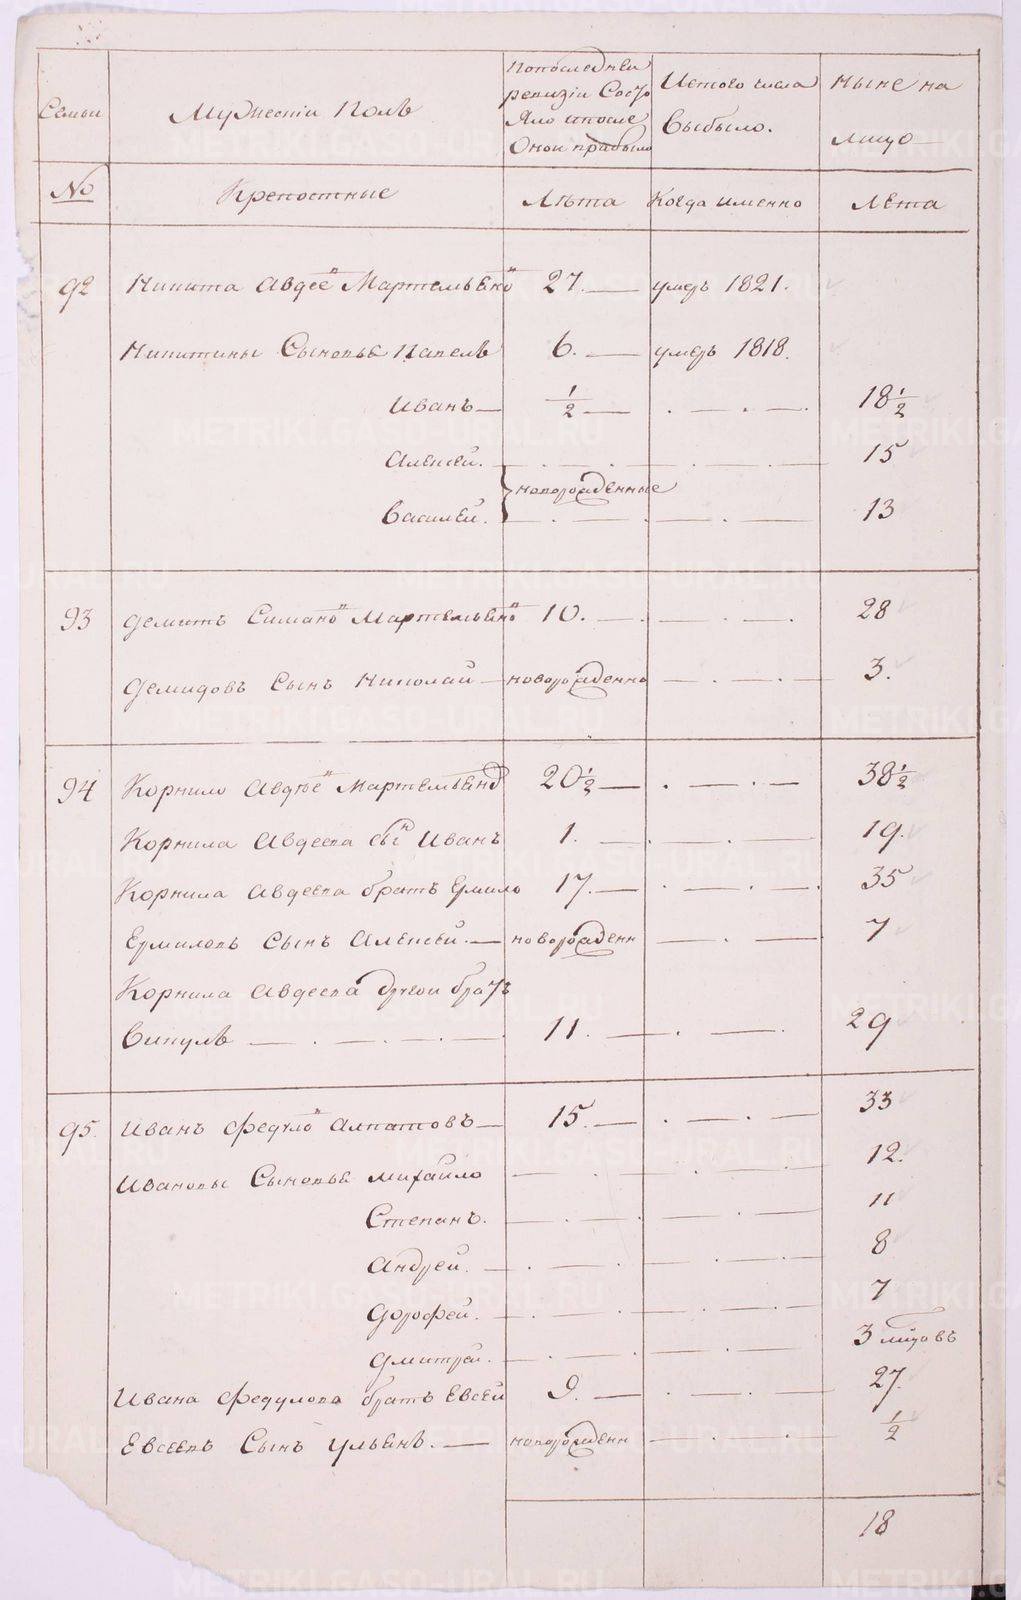 Семьи
Мужескiй Полъ
Попоследней
ревизiи Состо
Яло ипосле
Оной прибыло
Изтого числа
Выбыло.
Ныне на
лицо
№
Крепостные
Лѣта
Когда именно
Лета
92 Никита Авдее Мартемьяно 27. умеръ 1821.
Никитины Сыновья Павелъ 6. умеръ 1818.
Иванъ 1/2 18 1/2
Алексей. 15
новорожденные
Василей. 13
93 Демитъ Симано Мартемьяно 10. 28
Демидовъ Сынъ Николай новорожденно 3.
94 Корнило Авдѣе Мартемьяно 20 1/2 38 1/2
Корнила Авдеева сынъ Иванъ 1. 19.
Корнила Авдеева братъ Ермило 17. 35
Ермиловъ Сынъ Алексей. новорожденн 7
Корнила Авдеева другои братъ
Викулъ 11. 29
95. Иванъ Федуло Алпатовъ 15. 33
Ивановы Сыновья Михайло 12.
Степанъ. 11
Андрей. 8
Дорофей. 7
Дмитрей. 3
Ивана Федулова братъ Евсей 9. 27.
Евсеевъ Сынъ Ульянъ. новорожденн 1/2
18
METRIKI.GASO-URAL.RU